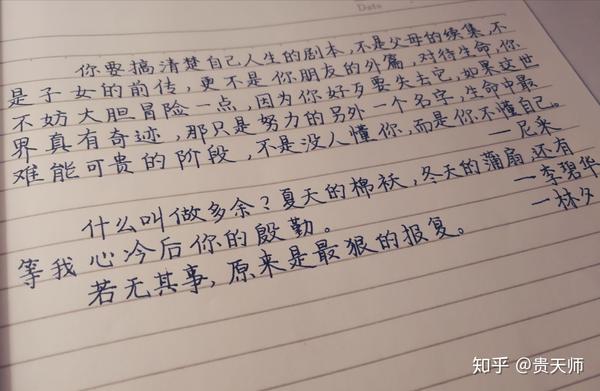 Date
你要搞清楚自己人生的剧本,不是父母的续集,不
是子女的前传,更不是你朋友的外篇,对待生命,你
不妨大胆冒险一点,因为你好歹要失去它,如果这世
界真有奇迹,那只是努力的另外一个名字,生命中最
难能可贵的阶段,不是没人懂你,而是你不懂自己。
—尼采
什么叫做多余?夏天的棉袄,冬天的蒲扇,还有
等我心冷后你的殷勤。
—李碧华
若无其事,原来是最狠的报复。
—林夕
知乎 @贵天师